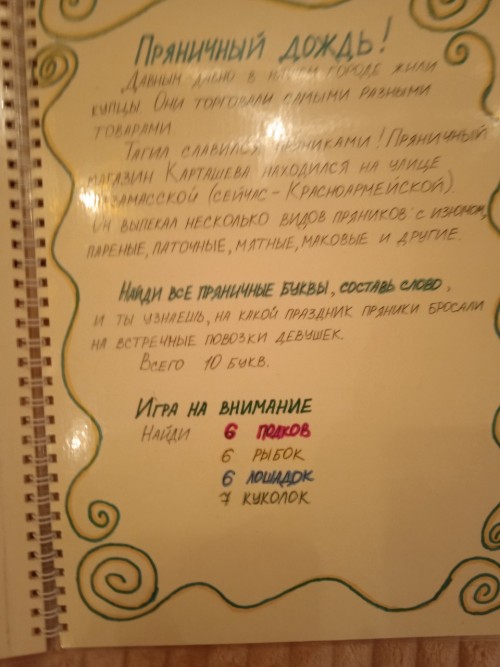 Пряничный дождь!
Давным давно в нашем городе жили
купцы. Они торговали самыми разными
товарами.
Тагил славился пряниками! Пряничный
магазин Карташева находился на улице
Арзамасской (сейчас - Красноармейской)
Он выпекал несколько видов пряников: с изюмом,
пареные, паточные, мятные, маковые и другие.
Найди все пряничные буквы, составь слово,
и ты узнаешь, на какой праздник пряники бросали
на встречные повозки девушек.
Всего 10 букв.
Игра на внимание
Найди 6 подков
6 рыбок
6 лошадок
7 куколок